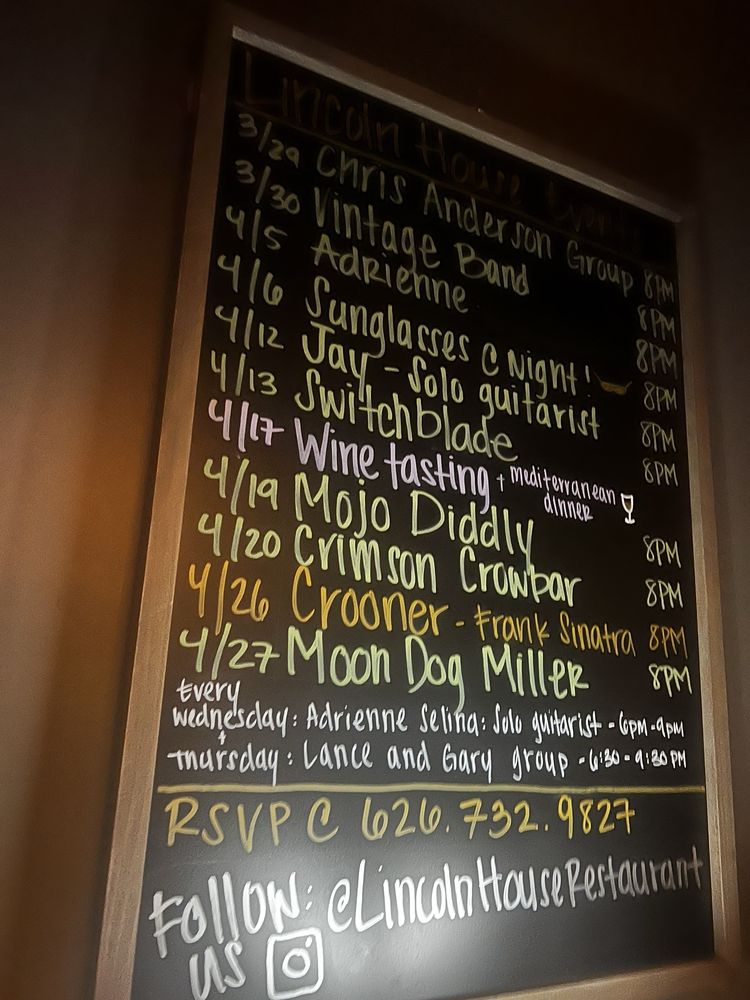 Lincoln House Events
3/29 Chris Anderson Group 8PM
3/30 Vintage Band 8PM
4/5 Adrienne 8PM
4/6 Sunglasses @ Night! 8PM
4/12 Jay - Solo guitarist 8PM
4/13 Switchblade 8PM
4/17 Wine tasting + mediterranean
dinner
4/19 Mojo Diddly 8PM
4/20 Crimson Crowbar 8PM
4/26 Crooner - Frank Sinatra 8PM
4/27 Moon Dog Miller 8PM
Every
wednesday: Adrienne Selina: Solo guitarist - 6PM-9PM
+
Thursday: Lance and Gary group - 6:30 - 9:30 PM
RSVP @ 626.732.9827
Follow: @LincolnHouseRestaurant
us